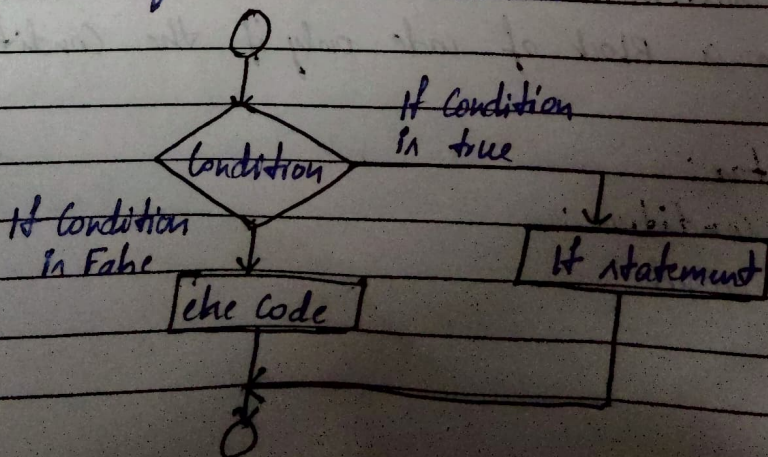 If Condition
is true
Condition
If Condition
is False
If statement
else Code